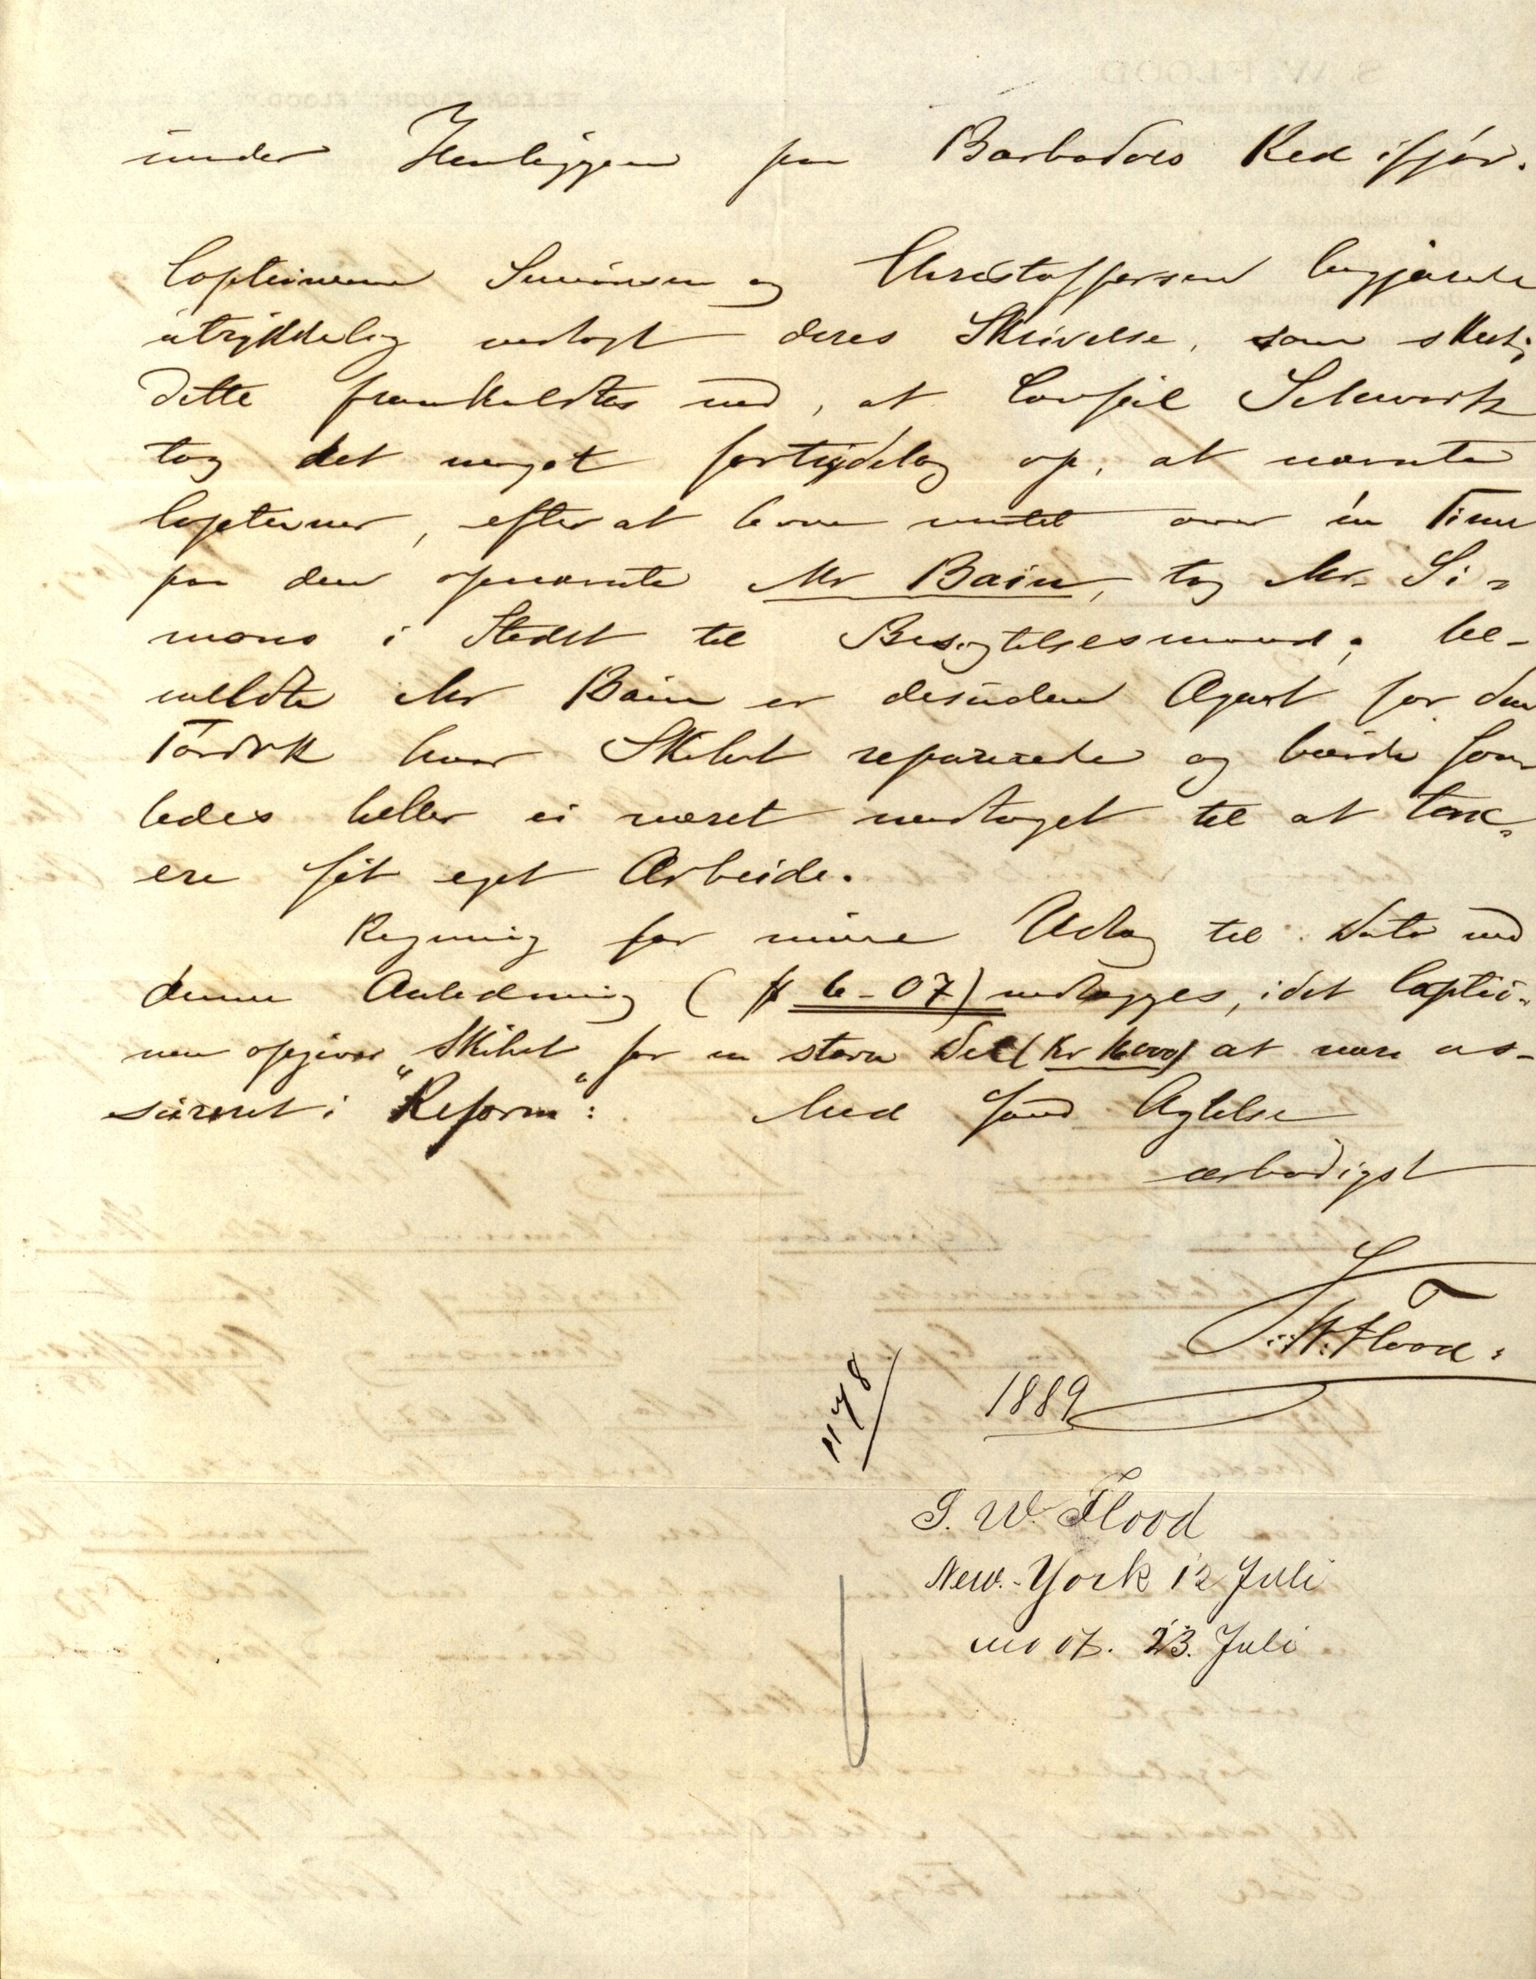 under Henliggen paa Barbados Red ifjor.
Capteinerne Simonsen og Christoffersen begjærede
utrykkelig vedlagt deres Skrivelse, som
dette fremholdtes ved, at Consul Schwartz
tog det meget fortrydelig op, at nævnte
Capteiner, efter at have ventet over én Time
paa den opnævnte Mr Bain, tog Mr. Si-
mons i Stedet til Besigtelsesmand; be-
meldte Mr Bain er desuden Agent for den
Fordok hvor Skibet reparerede og burde saa
ledes heller ei været medtaget til at tax-
ere sit eget Arbeide.
Regning for mine Udlæg til Dato ved
denne Anledning ($ 6-07) vedlægges, idet Captei-
nen opgiver Skibet for en større Del (Kr 16000) at være as-
sureret i "Reform":
Med sand Agtelse
ærbødigst
S. W. Flood.
1178
1889
S. W. Flood
New-York 12 Juli
mot. 23. Juli